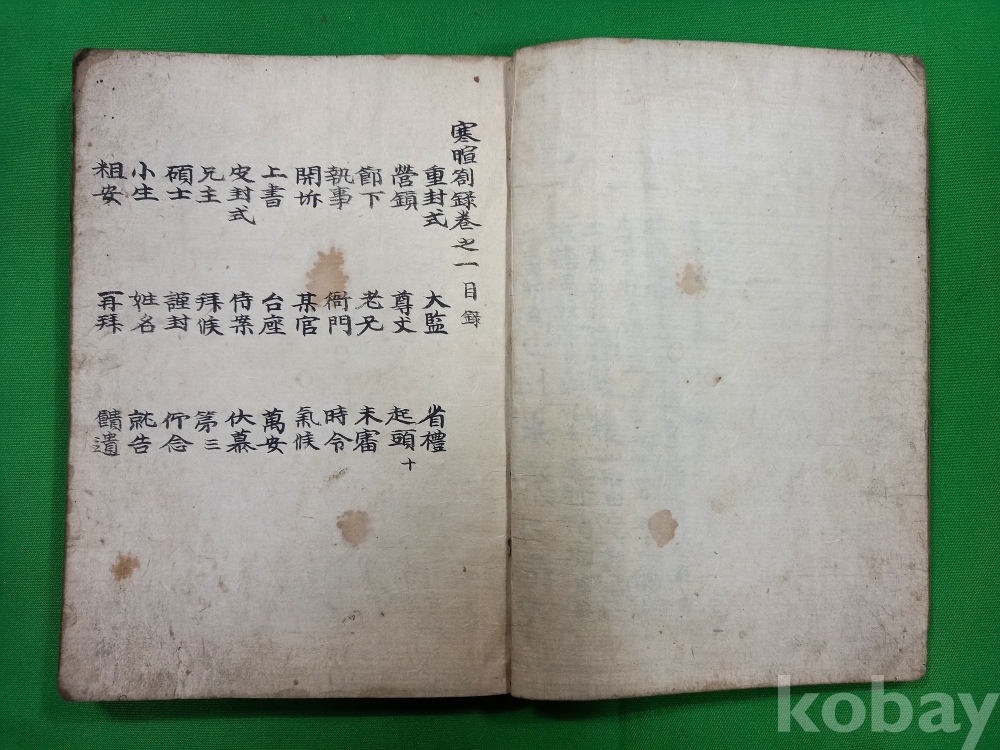 寒暄劄錄卷之一 目錄
重封式 大監 省禮
營鎭 尊丈 起頭十
節下 老兄 未審
執事 衙門 時令
開坼 某官 氣候
上書 台座 萬安
皮封式 侍案 伏慕
兄主 拜候 第三
碩士 謹封 仰念
小生 姓名 就告
粗安 再拜 饋遺
kobay